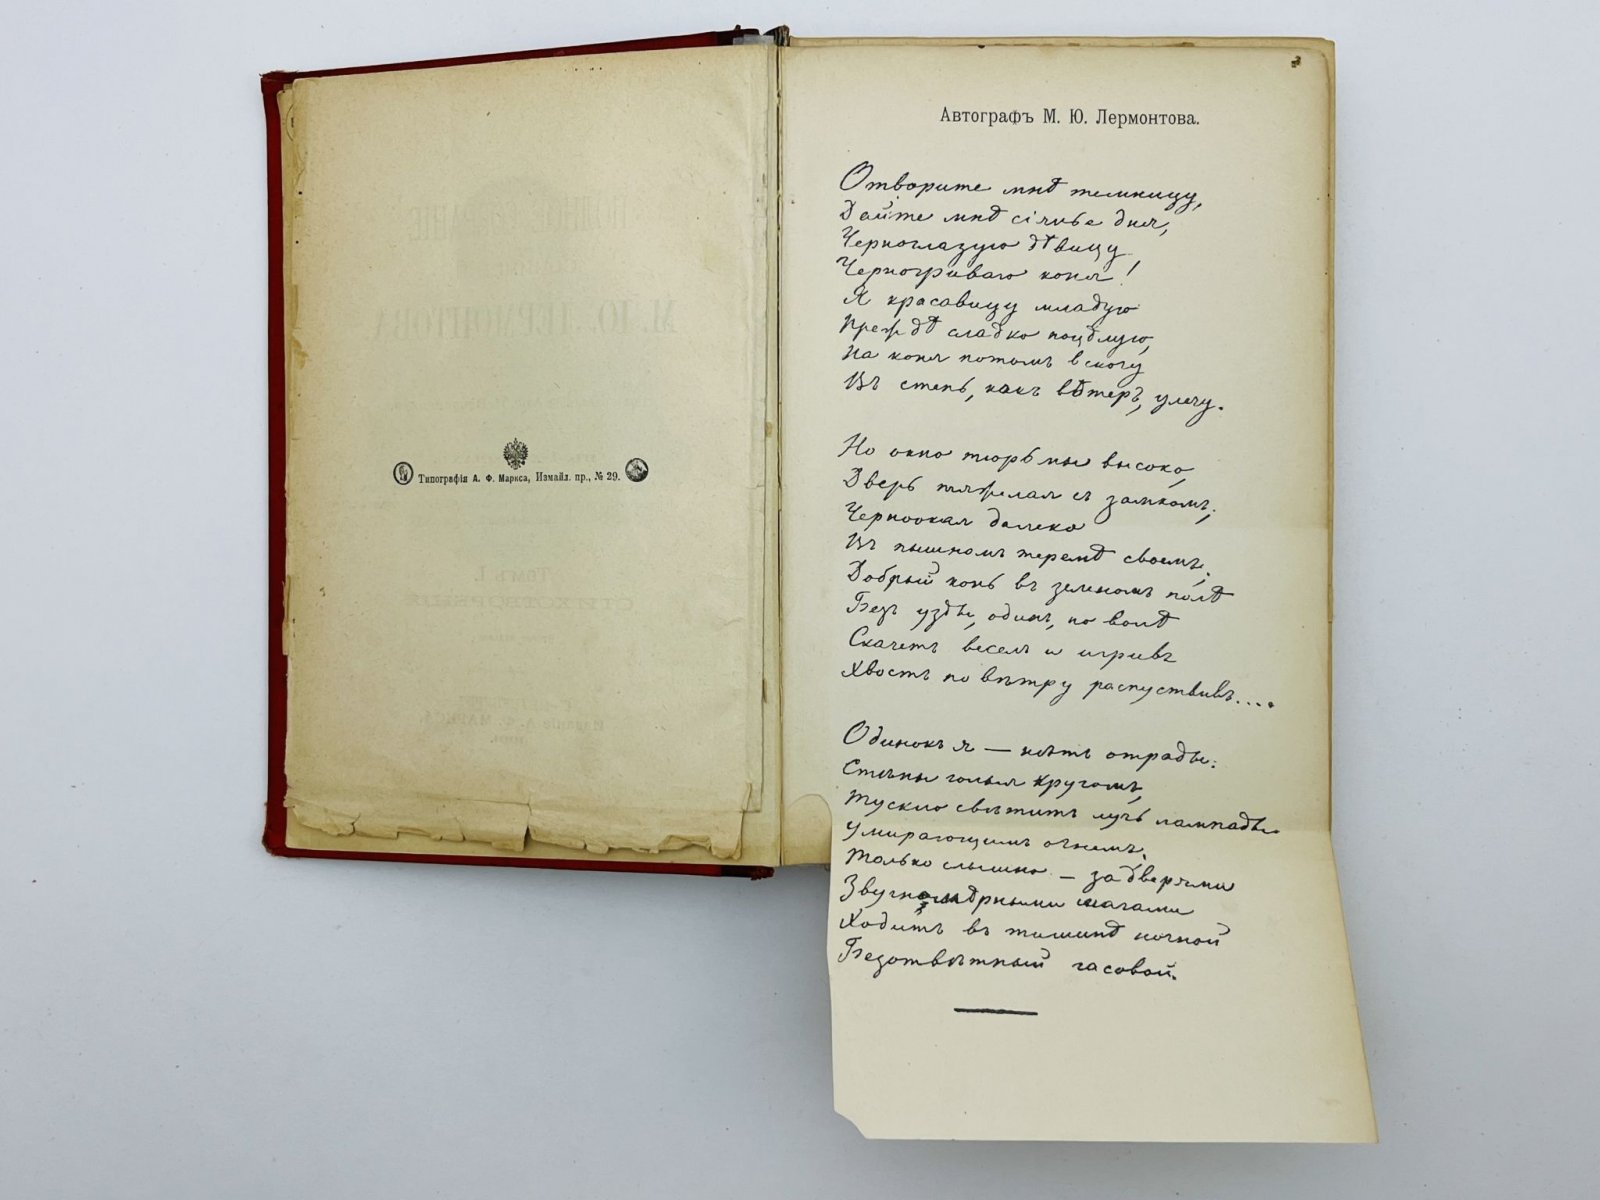 Типографія А. Ф. Маркса, Измайл. пр., № 29.
Автографъ М. Ю. Лермонтова.
Отворите мнѣ темницу,
Дайте мнѣ сіянье дня,
Черноглазую дѣвицу
Черногриваго коня!
Я красавицу младую
Прежде сладко поцѣлую,
На коня потомъ вскочу
Въ степь, какъ вѣтеръ, улечу.
Но окно тюрьмы высоко,
Дверь тяжелая съ замкомъ;
Черноокая далеко
Въ пышномъ теремѣ своемъ;
Добрый конь въ зеленомъ полѣ
Безъ узды, одинъ, по волѣ
Скачетъ веселъ и игривъ
Хвостъ по вѣтру распустивъ....
Одинокъ я — нѣтъ отрады:
Стѣны голыя кругомъ,
Тускло свѣтитъ лучъ лампады
Умирающимъ огнемъ;
Только слышно — за дверями
Звучномѣрными шагами
Ходитъ въ тишинѣ ночной
Безотвѣтный часовой.